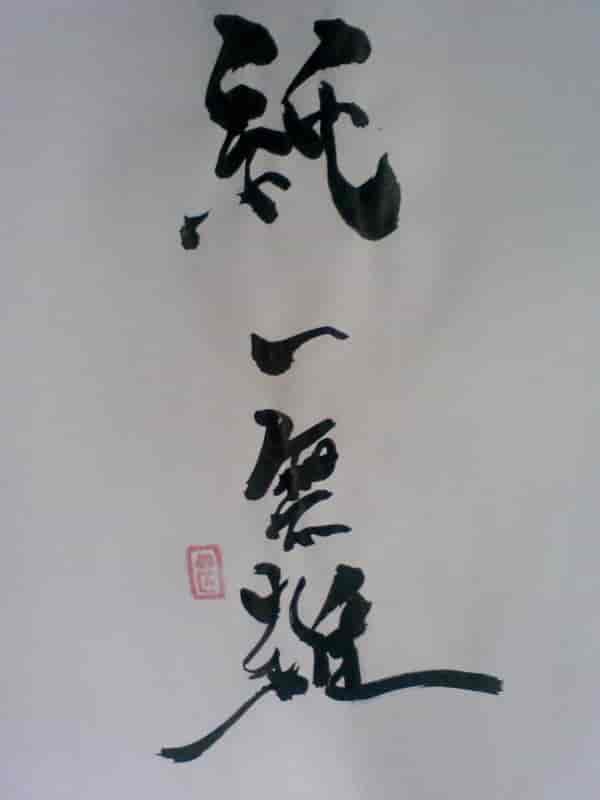 純一無雑